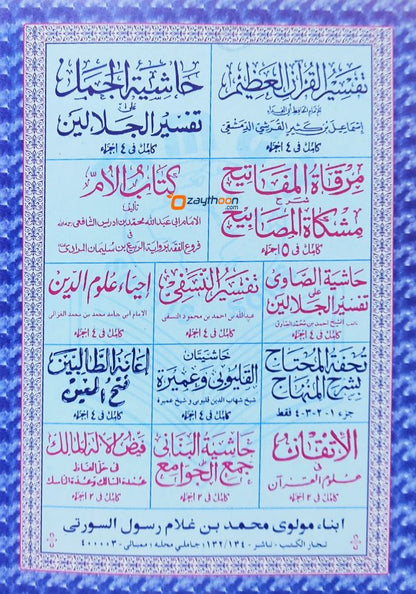 تفسير القرآن العظيم
للإمام الحافظ أبي الفداء
إسماعيل بن كثير القرشي الدمشقي
كامل في ٤ أجزاء
حاشية الجمل
على
تفسير الجلالين
كامل في ٤ أجزاء
مرقاة المفاتيح
شرح
مشكاة المصابيح
كامل في ٥ أجزاء
كتاب الأم
تأليف
الامام ابي عبدالله محمد بن ادريس الشافعي
في
فروع الفقه برواية الربيع بن سليمان المرادي
zaythoon
.com
حاشية الصاوي
على
تفسير الجلالين
الشيخ احمد بن محمد الصاوي
كامل في ٤ أجزاء
تفسير النسفي
عبدالله بن احمد بن محمود النسفي
كامل في ٤ أجزاء
إحياء علوم الدين
الامام ابي حامد محمد بن محمد الغزالي
كامل في ٤ أجزاء
تحفة المحتاج
بشرح المنهاج
جزء ١-٢-٣-٤ فقط
حاشيتان
القليوبي وعميرة
شيخ شهاب الدين قليوبي و شيخ عميرة
كامل في ٤ أجزاء
إعانة الطالبين
فتح المعين
كامل في ٤ أجزاء
الإتقان
في
علوم القرآن
كامل في ٢ أجزاء
حاشية البناني
على
جمع الجوامع
كامل في ٢ أجزاء
فيض الإله المالك
في حل ألفاظ
عمدة السالك وعدة الناسك
كامل في ٢ أجزاء
ابناء مولوي محمد بن غلام رسول السورتي
تجار الكتب - ناشر - ١٣٢/١٣٤ جاملي محله : ممبائي - ٤٠٠٠٠٣